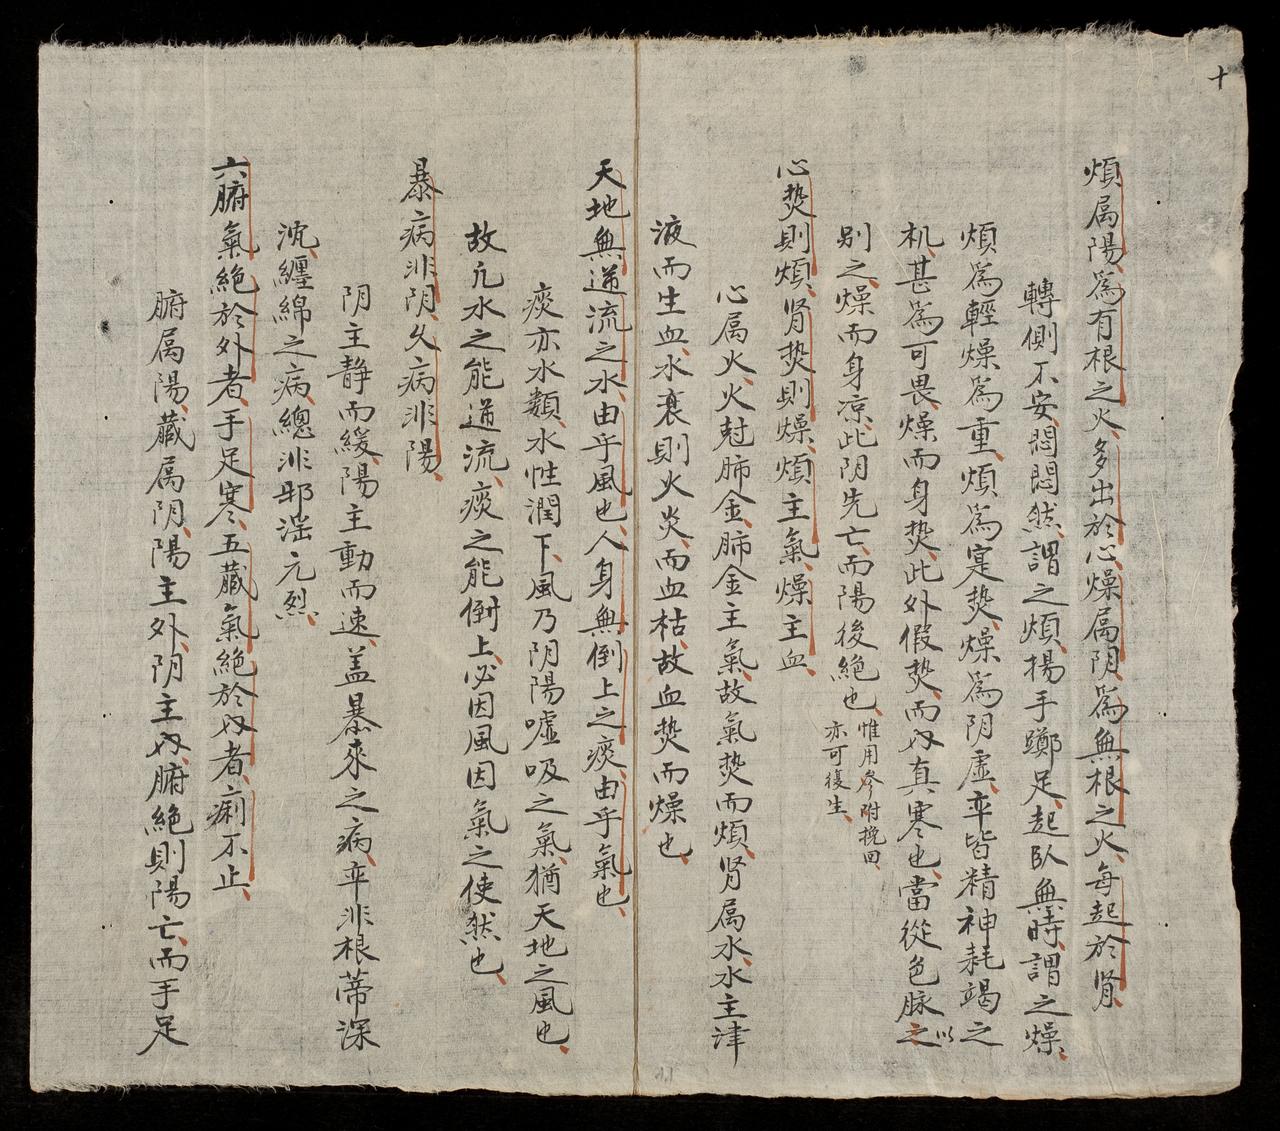 十
煩属陽、為有根之火、多出於心、燥属阴、為無根之火、每起於肾、
轉側不安、悶悶然、謂之煩、揚手躑足、起臥無時、謂之燥、
煩為輕、燥為重、煩為寔𤍠、燥為阴虚、卒皆精神耗竭之
机、甚為可畏、燥而身𤍠、此外假𤍠而内真寒也、當從色脉之以
别之、燥而身凉、此阴先亡、而陽後絶也、惟用参附挽回、
亦可復生、
心𤍠則煩、肾𤍠則燥、煩主氣、燥主血、
心属火、火尅肺金、肺金主氣、故氣𤍠而煩、肾属水、水主津
液而生血、水衰則火炎、而血枯、故血𤍠而燥也、
天地無逆流之水、由乎風也、人身無倒上之痰、由乎氣也、
痰亦水類、水性潤下、風乃阴陽嘘吸之氣、猶天地之風也、
故凢水之能逆流、痰之能倒上、必因風因氣之使然也、
暴病非阴、久病非陽、
阴主静而緩、陽主動而速、盖暴來之病、卒非根蒂深
沈、纏綿之病、總非邪滛亢烈、
六腑氣絶於外者、手足寒、五藏氣絶於内者、痢不止、
腑属陽、藏属阴、陽主外、阴主内、腑絶則陽亡、而手足